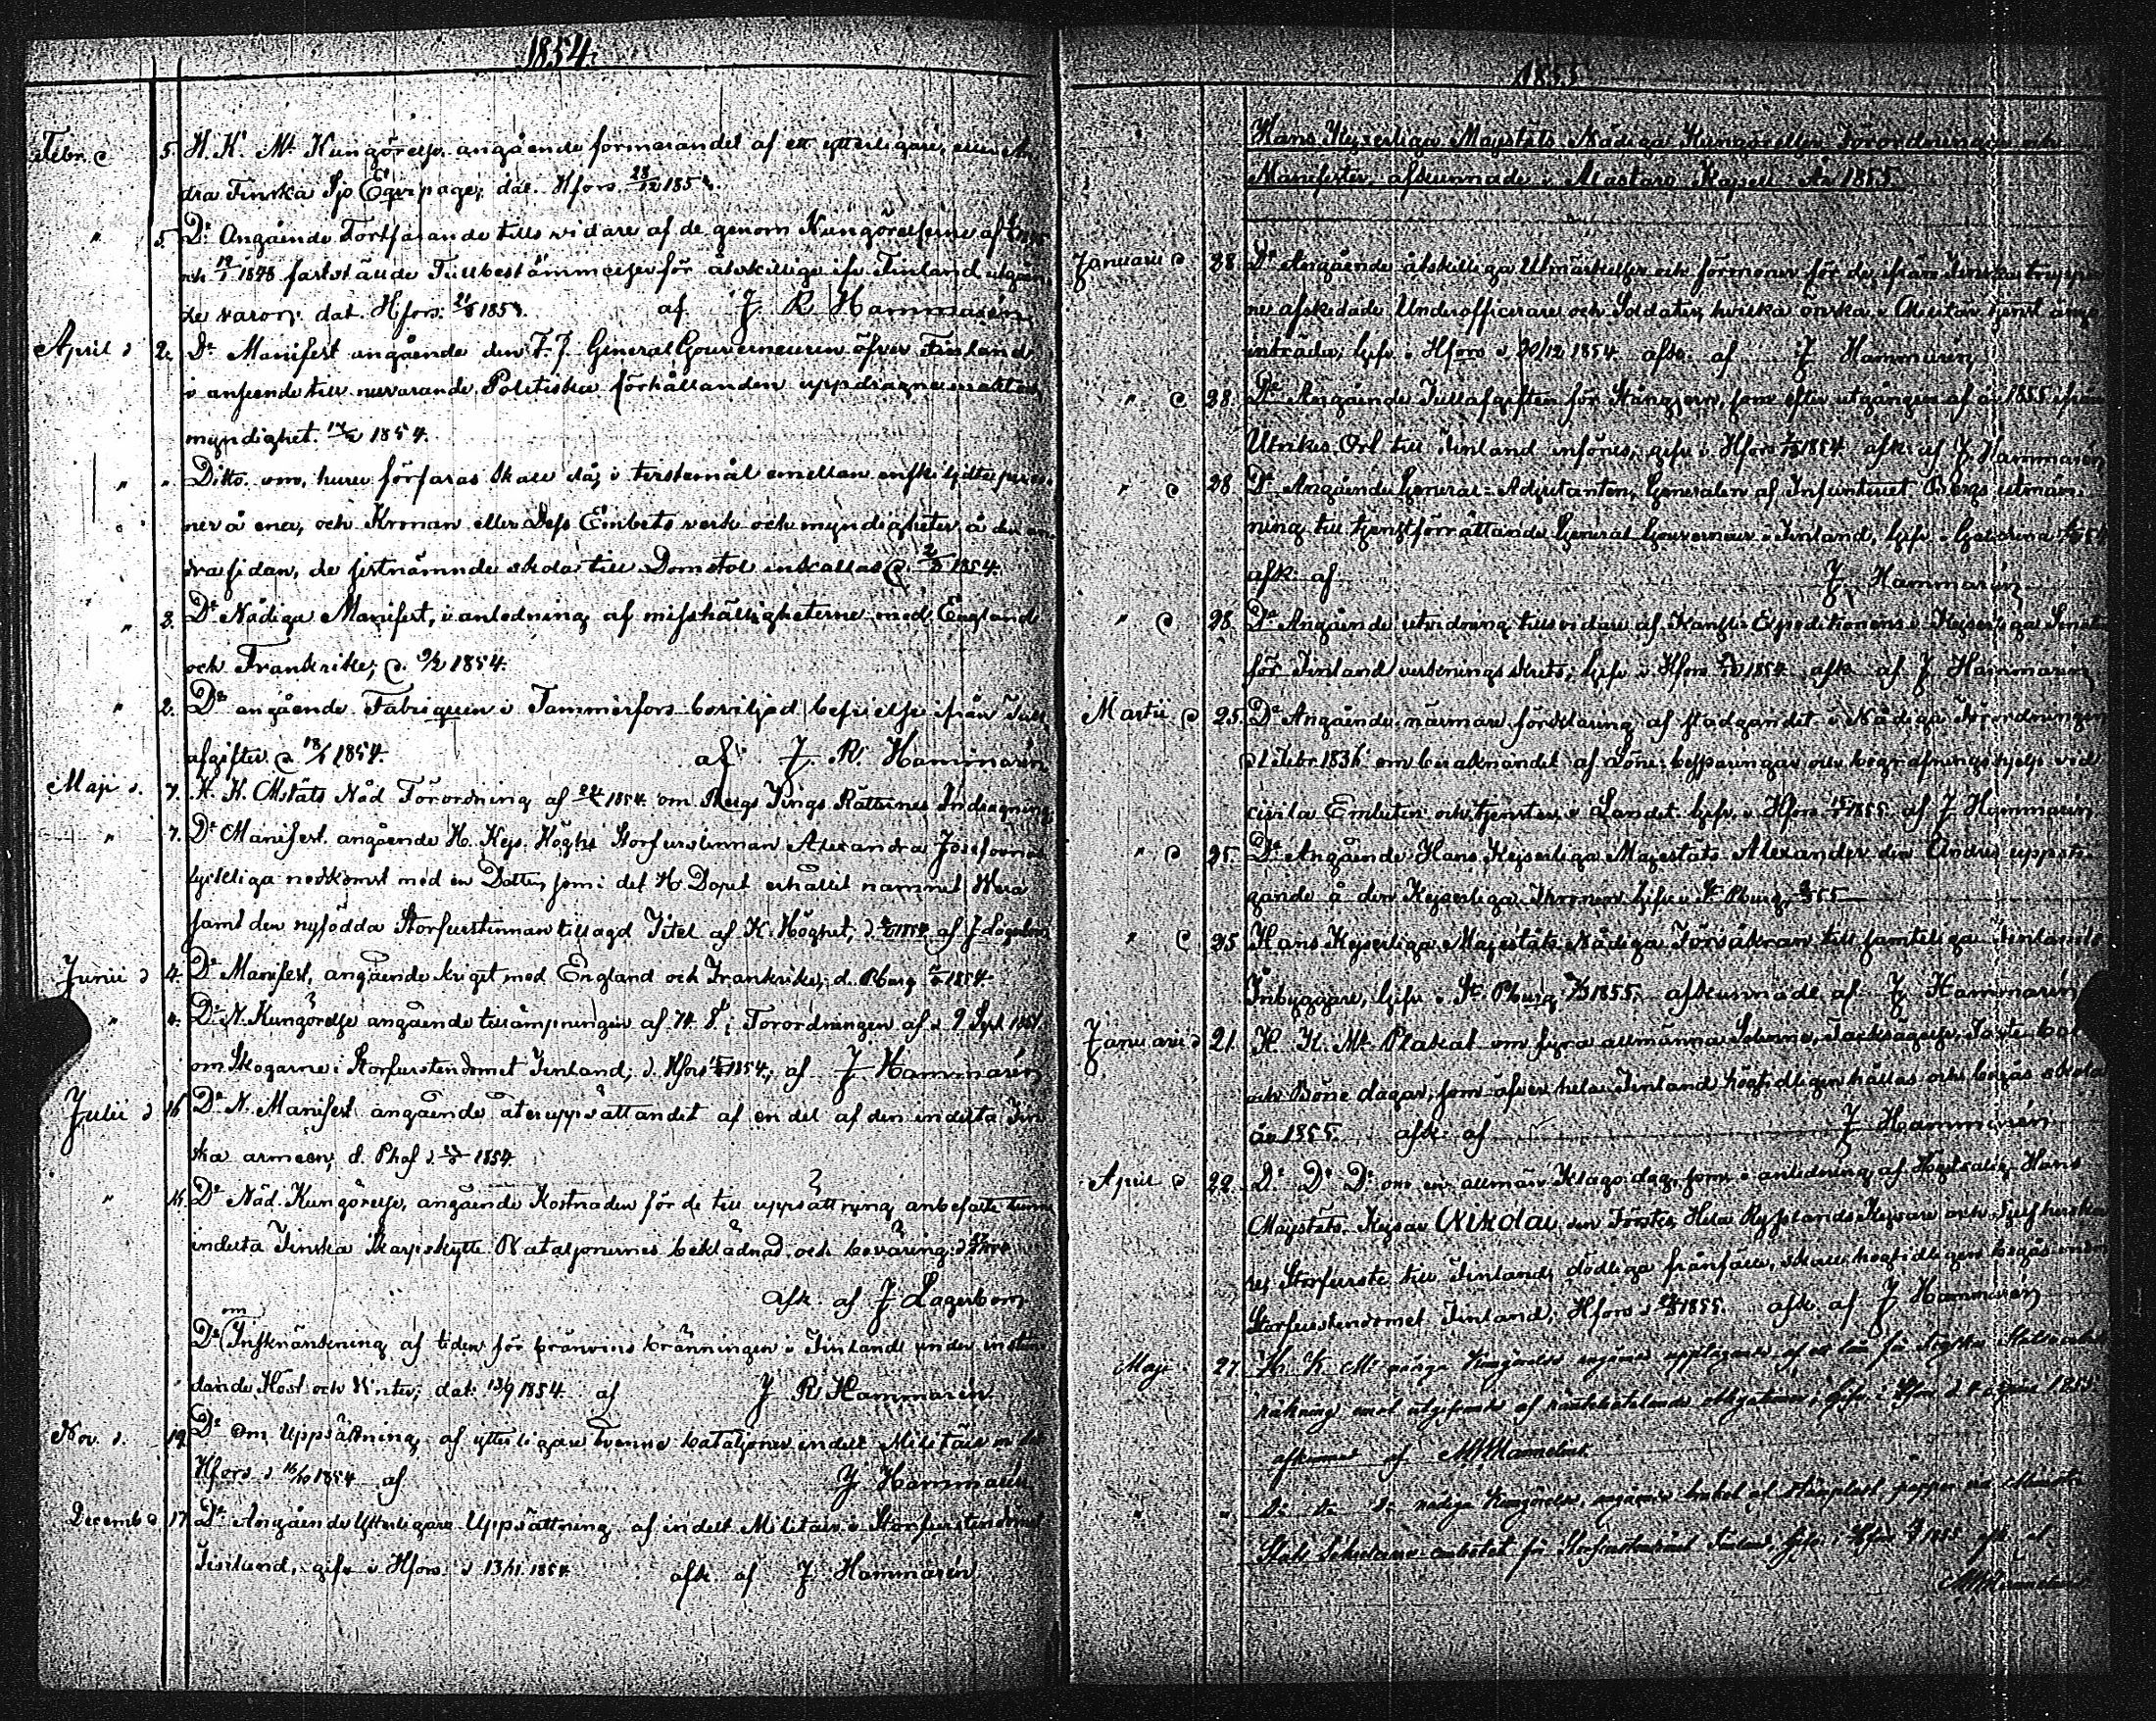 1854.
Febr. d 5. H. K. Mts Kungörelse angående formerandet af ett ytterligare, eller An-
dra Finska Sjö Eqvipage; dat. Hfors. 28/12 1853.
" 5. Do Angående Fortfarande tills vidare af de genom Kungörelserne af
och fastställde Tullbestämmelser för åtskillige ifr. Finland utgåen-
de varor; dat. Hfors. af J R Hammarén
April d 2. Do Manifest angående den T. f. General Gouverneuren öfver Finland
i anseende till nuvarande Politiska förhållanden uppdragne makt och
myndighet. 1854.
" " Ditto om, huru förfaras skall då, i tvistemål emellan enskilydte perso-
ner å ena, och Kronan eller Dess Embets verk och myndigheter å den an-
dra sidan, de sistnämnde skola till Domstol inkallas d. 1854.
" 2. Do Nådiga Manifest, i anledning af misshälligheterne med England
och Frankrike; d. 9/2 1854.
" 2. Do angående Fabriquen i Tammerfors beviljad befrielse ifrån Tull
afgifter d 18/1 1854. af J. R. Hammarén
Maji d. 7. K. K. Mstäts Nåd Förordning af 1854 om Bergs Tings Rätternes Indragning
" 7. Do Manifest angående H. Kejs. Höghts Storfurstinnan Alexandra Josefovnas
lyckliga nedkomst med en Dotter, som i det H. Dopet erhållit namnet Wera
samt den nyfödda Storfurstinnan tillagd Titel af K. Höghet; d. 1854 af J Lagerbom
Junii d 4. Do Manifest, angående kriget med England och Frankrike; d. Pburg 1854.
" 4. Do N. Kungörelse angående tillämpningen af 74 § i Förordningen af d 9 Sept 1851
om Skogarne i Storfurstendömet Finland; d. Hfors 1854; af J. Hammarén
Julii d 16 Do N. Manifest angående återuppsättandet af en del af den indelta Fin-
ska armeen; d. Phof d. 1854.
" 16. Do Nåd. Kungörelse, angående Kostnaden för de till uppsättning anbefalte tvenne
indelta Finska Skarpskytte Bataljonernes beklädnad och beväring; d
afk. af J Lagerbom
Do om Inskränkning af tiden för bränvins bränningen i Finland under instun-
dande Höst och Vinter; dat: 13/9 1854. af J R Hammarén
Nov. d. 19. Do Om Uppsättning af ytterligare tvenne bataljoner indelt Militair
Hfors d 16/10 1854 af J Hammarén
Decemb d 17. Do Angående Ytterligare Uppsättning af indelt Militair i Storfurstendömet
Finland, gifv. i Hfors d 13/11 1854. afk. af J Hammarén
1855
Hans Kejserliga Majestäts Nådiga Kungörelser Förordningar och
Manifester, afkunnade i Alastaro Kapell År 1855.
Januari d 28 Do Angående åtskilliga Utmärkelser och förmoner för de ifrån Finska trupper-
ne afskedade Underofficerare och Soldater, hvilka önska i Militär tjenst åter
inträda; Gifv. i Hfors d 30/12 1854. afk. af J Hammarén
" d 28. Do Angående Tullafgiften för Stångjern, som efter utgången af år 1855 ifrån
Utrikes Ort till Finland införes, gifv. i Hfors 1854 afk. af J. Hammarén
" d 28 Do Angående General-Adjutanten, Generalen af Infanteriet Bergs utnäm-
ning till tjenstförrättande General Gouverneur i Finland, Gifv. i Gatschina
afk. af J. Hammarén
" d 28. Do Angående utvidning tills vidare af Kansli-Expeditionens i Kejserliga Senaten
för Finland verknings krets; Gifv. i Hfors 1854 afk. af J Hammarén
Martii d 25. Do Angående närmare förklaring af stadgandet i Nådiga Förordningen
d 1 Febr. 1836 om beräknandet af Löne-besparingar och begrafningshjelp vid
civila Embeten och tjenster i Landet. Gifv. i Hfors 1855. af J Hammarén
" d 25. Do Angående Hans Kejserliga Majestäts Alexander den Andres uppsti-
gande å den Kejserliga Thronen. Gifv. i St. Pburg 55
" d 25 Hans Kejserliga Majestäts Nådiga Försäkran till samteliga Finlands
Inbyggare, Gifv. i St. Pburg 1855. afkunnade af J Hammarén
Januarii d 21. H. K. Mts Plakat om fyra allmänna Solenne, Tacksägelse, Faste- Bot-
och Böne dagar, som öfver hela Finland högtidligen hållas och begås skola
år 1855. afk. af J Hammarén
April d 22. Do Do Do om en allmän Klagodag, som i anledning af Högtsalig Hans
Majestäts Kejsar Nikolai den Förstes, Hela Rysslands Kejsare och Sjelfherska-
res, Storfurste till Finland, dödliga frånfälle, skall högtidligen begås inom
Storfurstendömet Finland; Hfors d 1855. afk. af J Hammarén
Maji 27. H. K. Mts nådiga Kungörelse angående uppläggande af ett lån för Finska Statsverkets
räkning emot utgifvande af räntebärande obligationer; Gifv. i Hfors d. 1855
afkunnat af
" " Do Do Do nådiga Kungörelse, angående bruket af stämplat papper vid Minister
Stats Sekretaire embetet för Storfurstendömet Finland Gifv. i Hfors 1855 afk. af